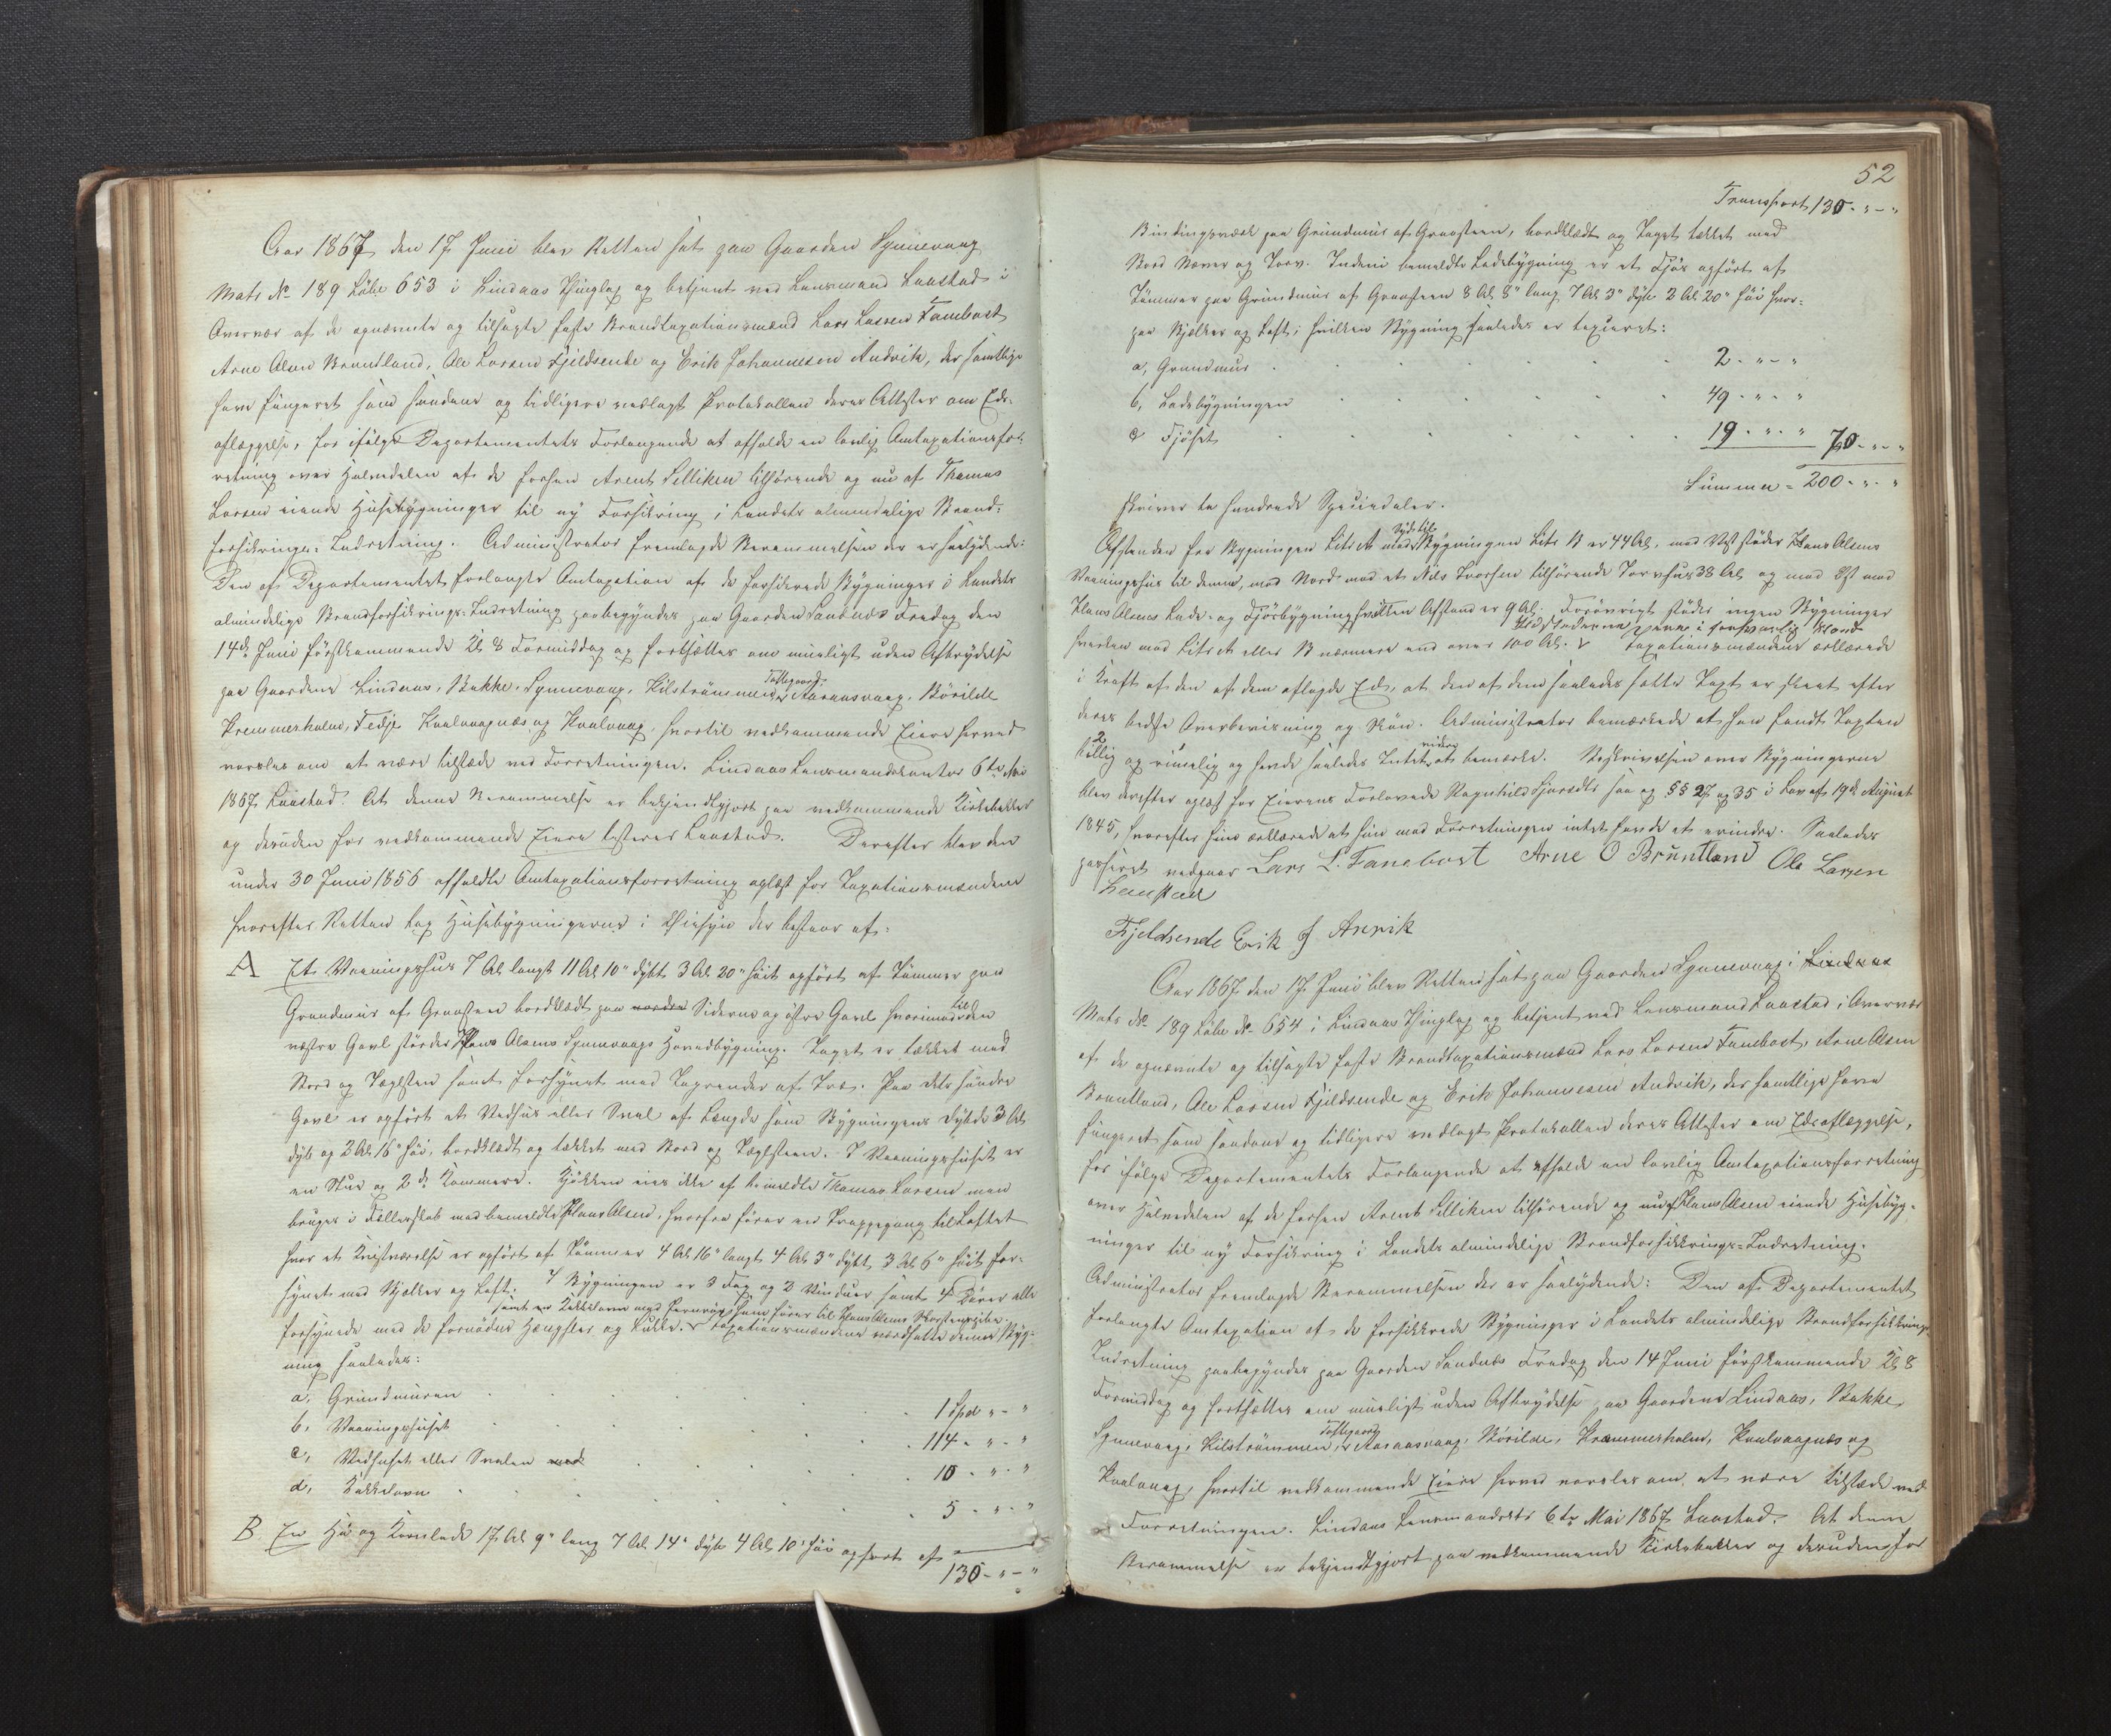 Aar 1867 den 17 Junii blev Retten sat paa Gaarden Synnevaag
Matr No 189 Løbe 653 i Lindaas Thinglag og betjent ved Lensmand Laastad i
Overvær af de opnævnte og tilsagte faste Brandtaxationsmænd Lars Larsen Fanebost
Arne Olsen Bruntland, Ole Larsen Fjeldsende og Erik Johannesen Andvik, der samtlige
have fungeret som saadane og tidligere vedlagt Protokollen deres Attester om Eds-
aflæggelse, for ifølge Departementets Forlangende at afholde en lovlig Omtaxationsfor-
retning over Halvdelen af de forhen Arent Selliken tilhørende og nu af Thomas
Larsen eiende Huusebygninger til ny Forsikring i Landets almindelige Brand-
forsikrings-Indretning. Administrator fremlagde Berammelsen der er saalydende:
Den af Departementet forlangte Omtaxation af de forsikrede Bygninger i Landets
almindelige Brandforsikrings-Indretning paabegyndes paa Gaarden Sandnæs Fredag den
14de Juni førstkommende Kl 8 Formiddag og fortsættes om muligt uden Afbrydelse
paa Gaardene Lindaas, Bakke, Synnevaag, Kilstrømmen, Toftegaard, Aaraasvaag, Børilde
Kremmerholm, Fedje Kaalvaagnæs og Kaalvaag, hvortil vedkommende Eiere herved
varsles om at være tilstæde ved Forretningen. Lindaas Lensmandskontor 6te Mai
1867 Laastad. At denne Berammelse er bekjendtgjort paa vedkommende Kirkebakker
og desuden for vedkommende Eiere testerer Laastad. Derefter blev den
under 30 Juni 1856 afholdte Omtaxationsforretning oplæst for Taxationsmændene
hvorefter Retten tog Huusebygningerne i Øiesyn der bestaar af:
A Et Vaaningshus 7 Al langt 11 Al 10" dybt 3 Al 20" høit opført af Tømmer paa
Grundmuur af Graasteen bordklædt paa norden Siderne og østre Gavl hvorimod til den
vestre Gavl støder Hans Olsens Synnevaags Hovedbygning. Taget er tækket med
Bord og Tagsteen samt forsynet med Tagrender af Træ. Paa dets søndre
Gavl er opført et Vedhus eller Sval af Længde som Bygningens Dybde 3 Al
dyb og 2 Al 16" høi, bordklædt og tækket med Bord og Tagsteen. I Vaaningshuset er
en Stue og 2de Kammere. Kjøkken eies ikke af bemeldte Thomas Larsen men
bruges i Fællesskab med bemeldte Hans Olsen, hvorfra fører en Trappegang til Loftet
hvor et Kvistværelse er opført af Tømmer 4 Al 16" langt 4 Al 3" dybt 3 Al 6" høit for-
synet med Bjælker og Loft. I Bygningen er 3 Fag og 2 Vinduer samt 4 Dører alle
samt en Kakkelovn med Jernrør, som fører til Hans Olsens Skorsteenspibe.
forsynede med de fornødne Hængsler og Lukke. Taxationsmændene værdsatte denne Byg-
ning saaledes:
a, Grundmuren . . . 1 Spd " - "
b, Vaaningshuset . . . 114 - " - "
c, Vedhuset eller Svalen med . . . 10 - " - "
d, Kakkelovn . . . 5 - " - "
B En Hø og Kornlade 17 Al 9" lang 7 Al 14" dyb 4 Al 10" høi opført af
130 - " - "
52
Transport 130 - " - "
Bindingsværk paa Grundmuur af Graasteen, bordklædt og Taget tækket med
Bord Næver og Torv. Indeni bemeldte Ladebygning er et Fjøs opført af
Tømmer paa Grundmuur af Graasteen 8 Al 8" lang 7 Al 3" dyb 2 Al 20" høi hvor-
paa Bjælker og Loft; hvilken Bygning saaledes er taxeret:
a, Grundmuur . . . 2 - " - "
b, Ladebygningen . . . 49 - " - "
c Fjøset . . . 19 - " - " 70 - " - "
Summa = 200 - " - "
skriver to hundrede Speciedaler.
Afstanden fra Bygningen Litr A mod Syd til Bygningen Litr B er 44 Al, mod Vest støder Hans Olsens
Vaaningshus til denne, mod Nord med et Nils Ivarsen tilhørende Torvhus 38 Al og mod Øst med
Hans Olsens Lade- og Fjøsbygning hvilken Afstand er 9 Al. Forøvrigt støder ingen Bygninger
Ildstederne vare i forsvarlig Stand
hverken mod Litr A eller B nærmere end over 100 Al. Taxationsmændene erklærede
i Kraft af den af dem aflagde Ed, at den af dem saaledes satte Taxt er skeet efter
deres bedste Overbevisning og Skøn. Administrator bemærkede at han fandt Taxten
billig og rimelig og havde saaledes Intet videre at bemærke. Beskrivelsen over Bygningerne
blev derefter oplæst for Eierens Forlovede Ragnhild Sjursdtr saa og §§ 27 og 35 i Lov af 19de August
1845, hvorefter hun erklærede at hun mod Forretningen intet havde at erindre. Saaledes
passeret vedgaar Lars L. Fanebost Arne O Bruntland Ole Larsen
Laastad
Fjeldsende Erik J Anvik
Aar 1867 den 17 Juni blev Retten sat paa Gaarden Synnevaag i Lindaas
Matr No 189 Løbe No 654 i Lindaas Thinglag og betjent ved Lensmand Laastad i Overvær
af de opnævnte og tilsagte faste Brandtaxationsmænd Lars Larsen Fanebost, Arne Olsen
Bruntland, Ole Larsen Fjeldsende og Erik Johannesen Andvik, der samtlige have
fungeret som saadane og tidligere vedlagt Protokollen deres Attester om Edsaflæggelse,
for ifølge Departementets Forlangende at afholde en lovlig Omtaxationsforretning
over Halvedelen af de forhen Arent Selliken tilhørende og nu af Hans Olsen eiende Huusebyg-
ninger til ny Forsikring i Landets almindelige Brandforsikkrings-Indretning.
Administrator fremlagde Berammelsen der er saalydende: Den af Departementet
forlangte Omtaxation af de forsikkrede Bygninger i Landets almindelige Brandforsikkrings-
Indretning paabegyndes paa Gaarden Sandnæs Fredag den 14 Juni førstkommende Kl 8
Formiddag og fortsættes om muligt uden Afbrydelse paa Gaardene Lindaas, Bakke,
Synnevaag, Kilstrømmen, Toftegaard, Aaraasvaag, Børilde, Kræmmerholm, Kaalvaagnæs og
Kaalvaag, hvortil vedkommende Eiere herved varsles om at være tilstæde ved
Forretningen. Lindaas Lensmandsktr 6te Mai 1867 Laastad. At denne
Berammelse er bekjendtgjort paa vedkommende Kirkebakker og desuden for